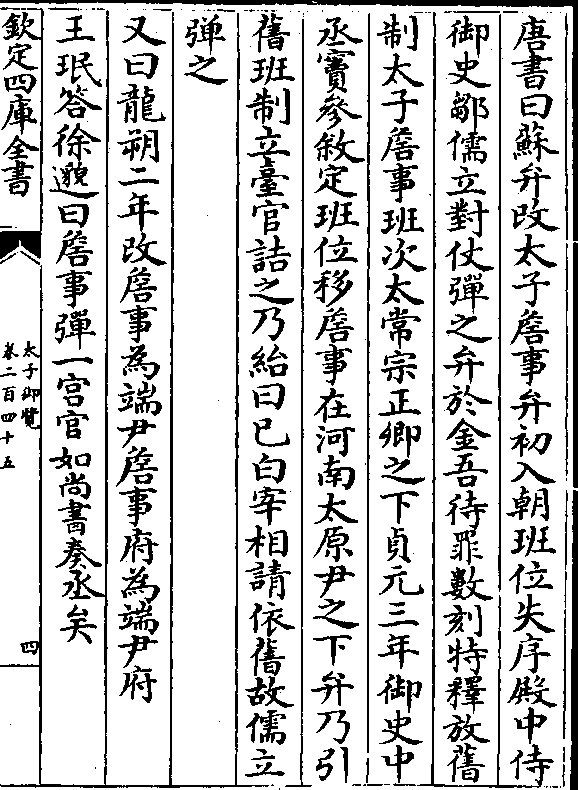 唐書曰蘇弁改太子詹事弁初入朝班位失序殿中侍
御史鄒儒立對仗彈之弁於金吾待罪數刻特釋放舊
制太子詹事班次太常宗正卿之下貞元三年御史中
丞竇參敘定班位移詹事在河南太原尹之下弁乃引
舊班制立臺官詰之乃紿曰已白宰相請依舊故儒立
彈之
又曰龍朔二年改詹事為端尹詹事府為端尹府
王珉答徐邈曰詹事彈一宫官如尚書奏丞矣
欽定四庫全書
太子御覽
卷二百四十五
四